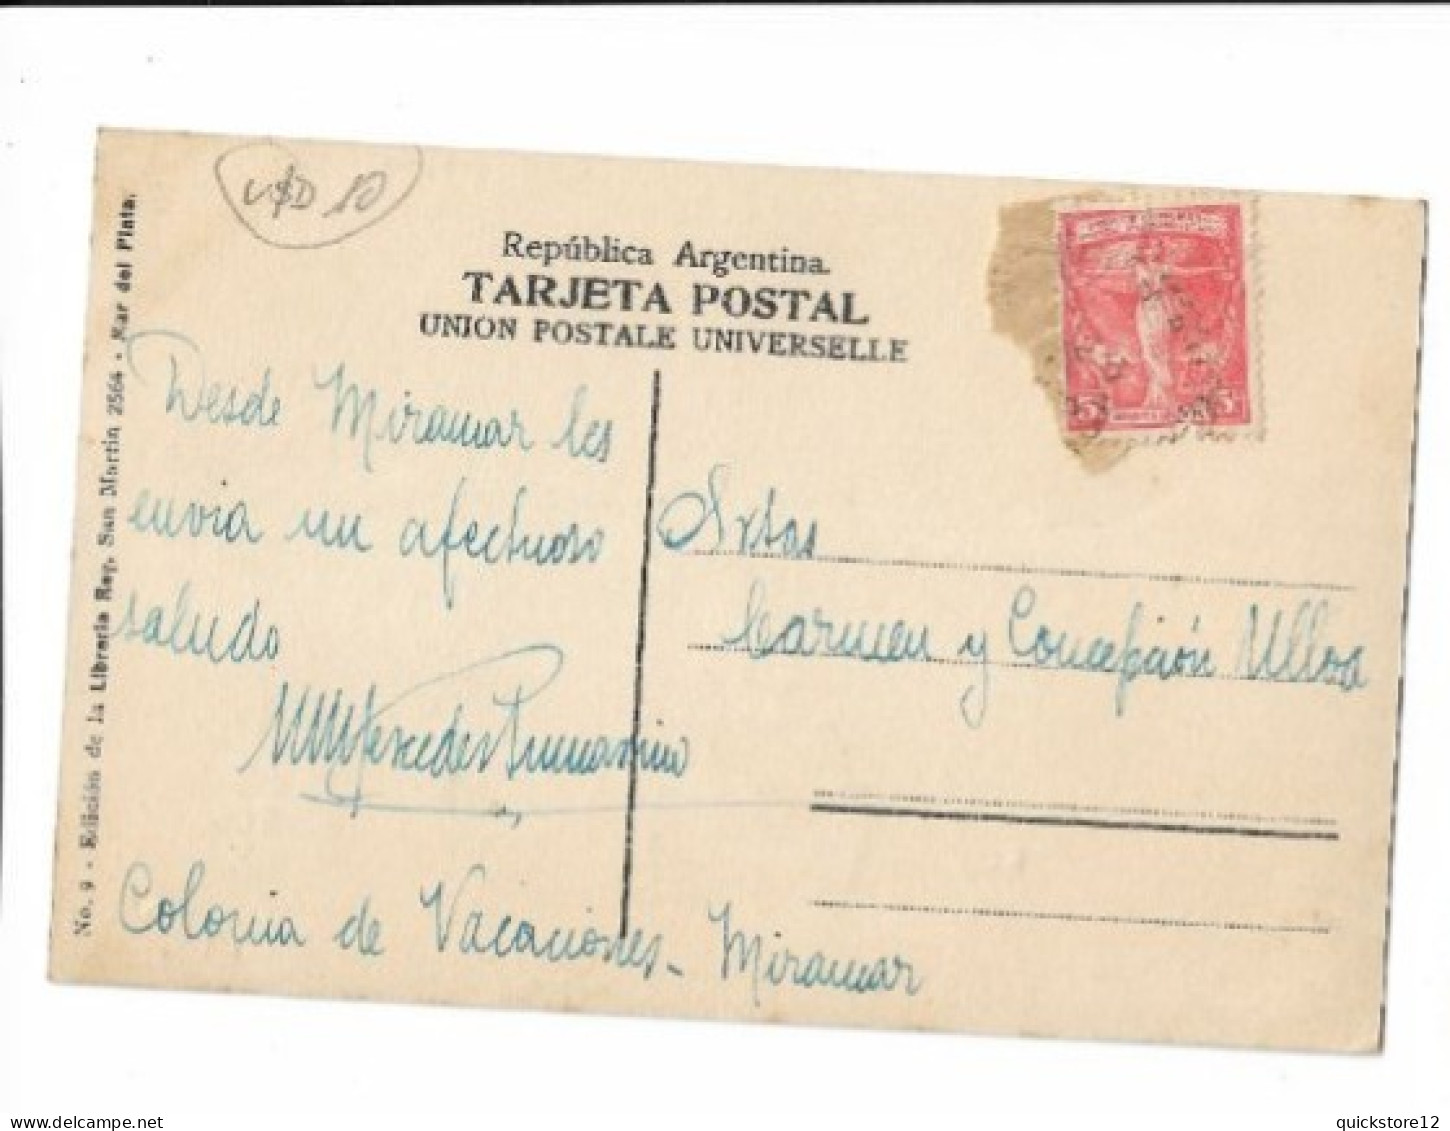 U$D 10
República Argentina.
TARJETA POSTAL
UNION POSTALE UNIVERSELLE
No. 9 - Edición de la Librería Rey, San Martín 2564 - Mar del Plata.
Desde Miramar les
envia un afectuoso
saludo
Mercedes
Colonia de Vacaciones - Miramar
Srtas
Carmen y Concepción Ulloa
5
5
quickstore12